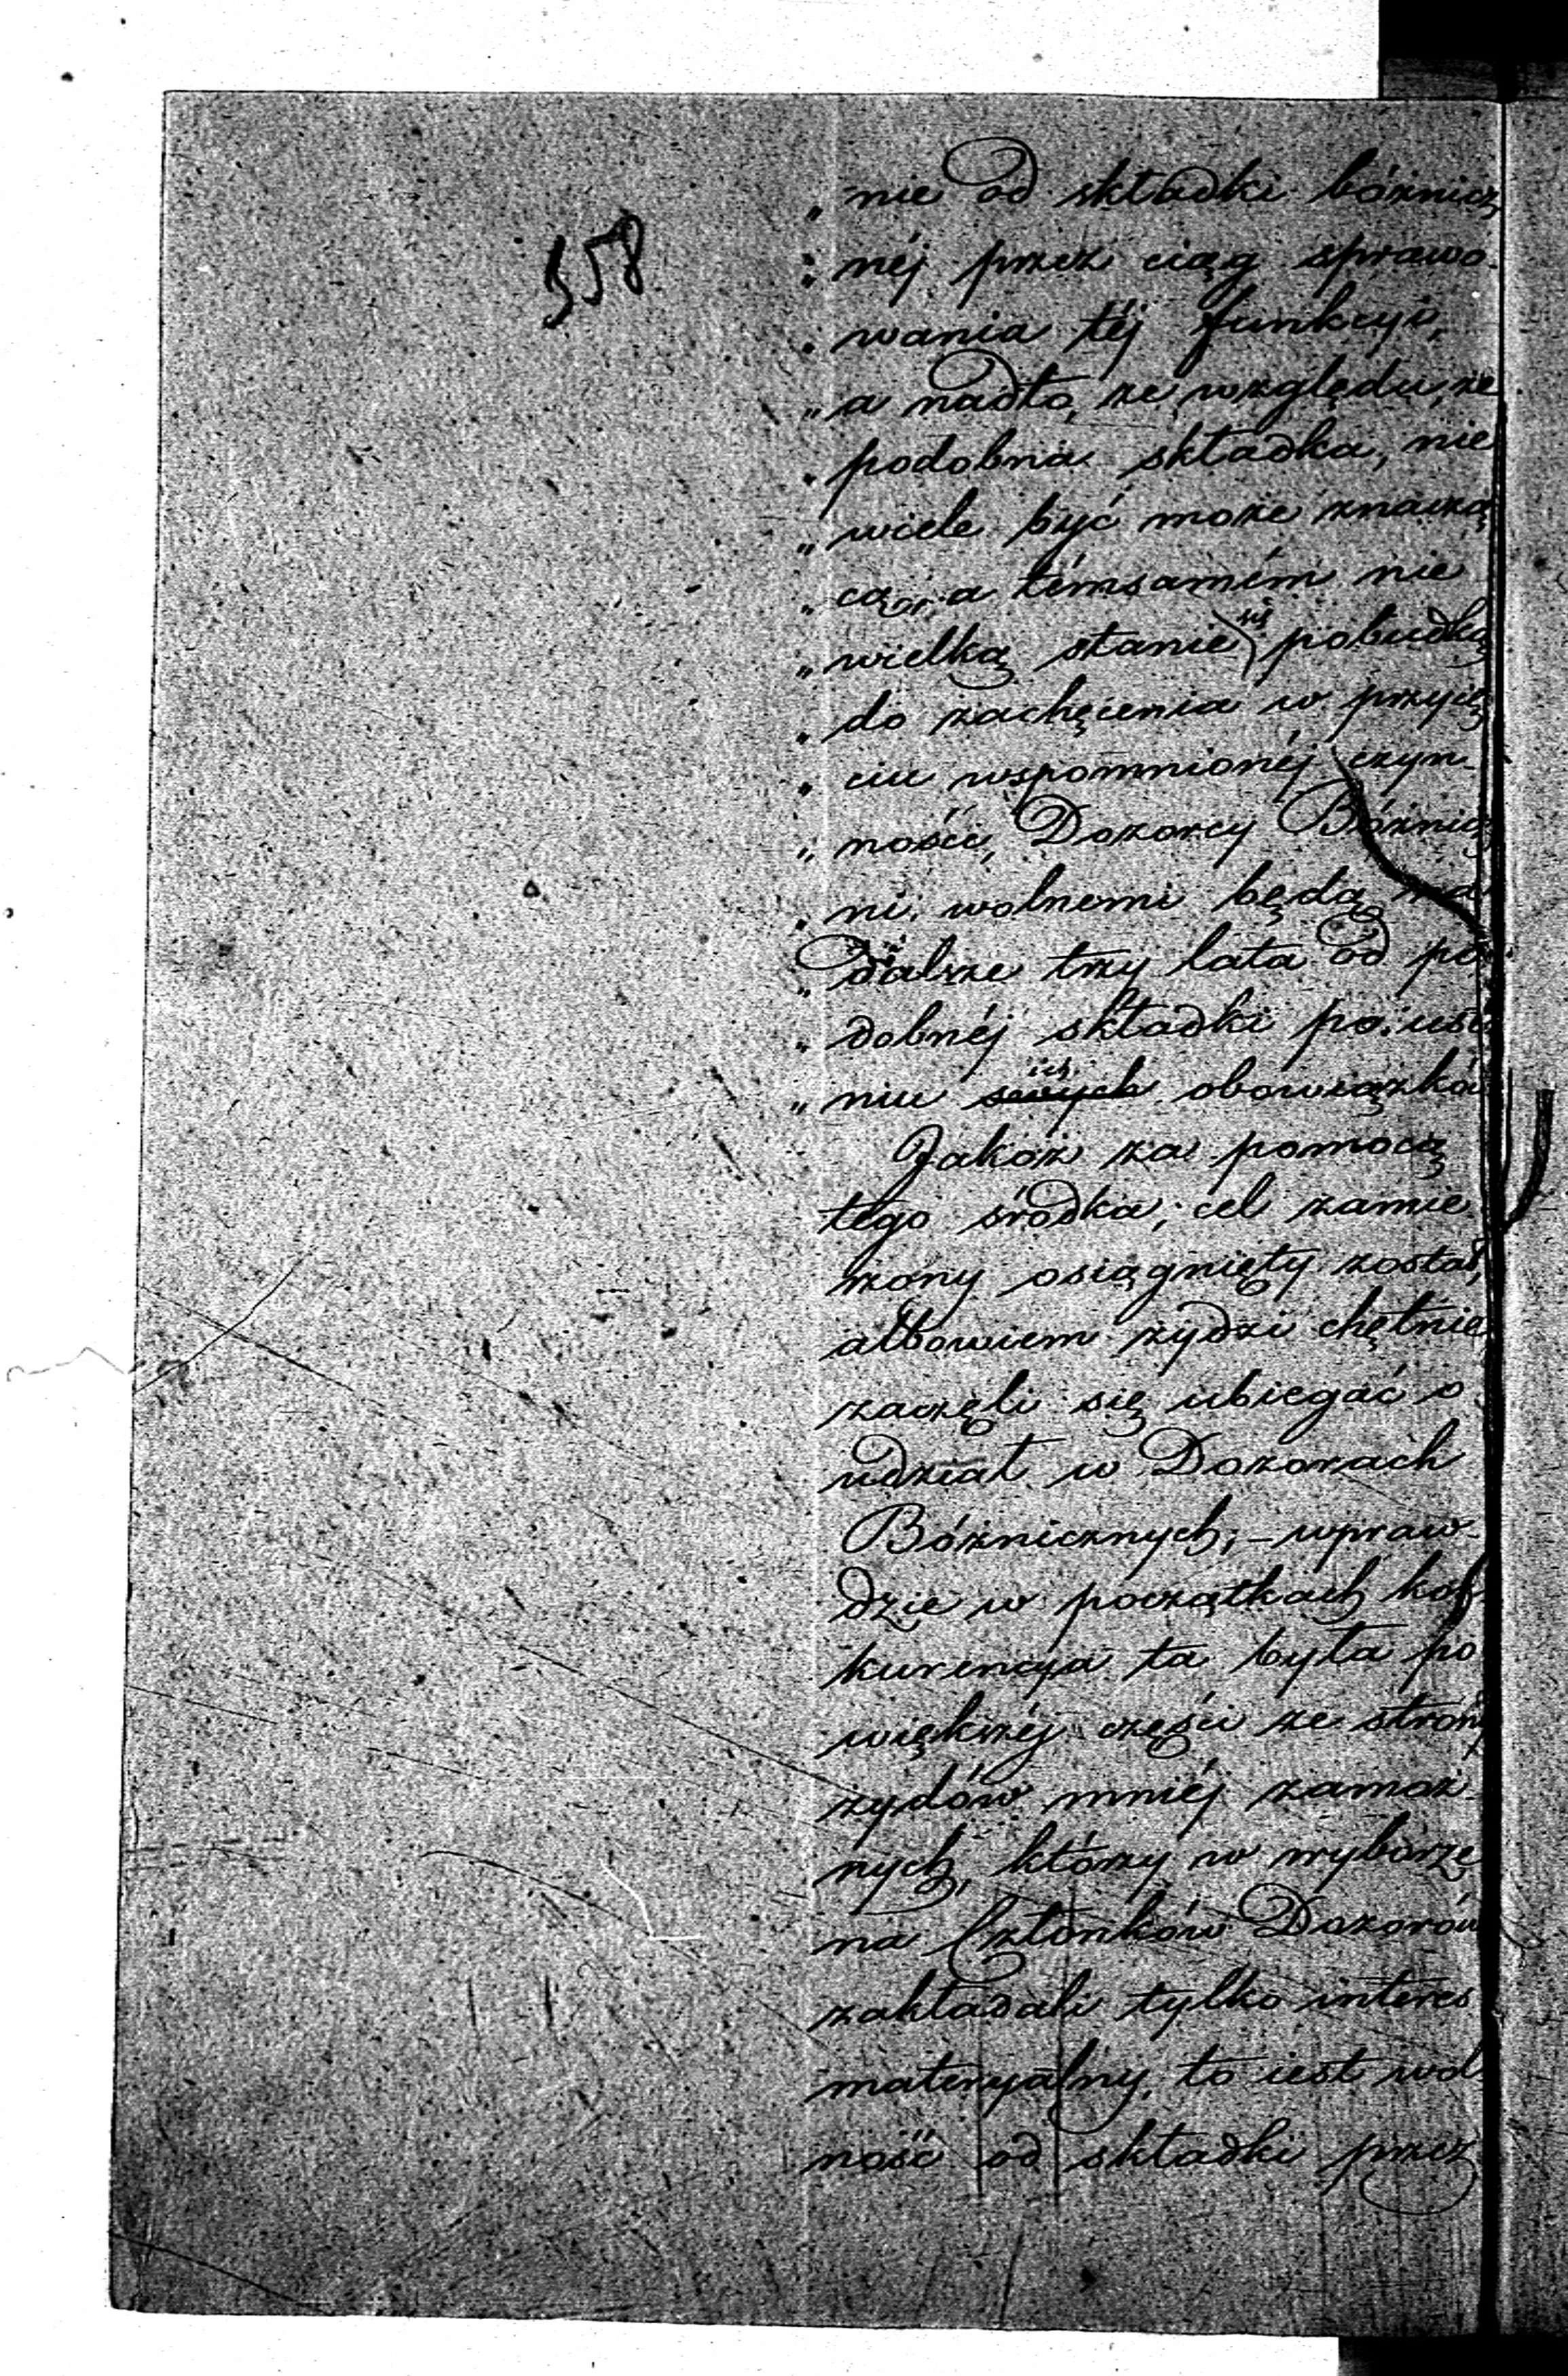 358
„ nie od składki bóżnicz
„ néj przez ciąg sprawo-
„ wania téj funkcyi,
„ a nadto, ze względu, że
„ podobna składka, nie
„ wiele być może znaczą
„ cą, a témsamém nie
„ wielką stanie się pobudką
„ do zachęcenia w przyię
„ ciu wspomnionéj czyn-
„ ności, Dozorcy Bóżnicz
„ ni, wolnemi będą na
„ dalsze trzy lata od po
„ dobnéj składki po uści
„ niu swych ich obowiązków
Jakoż za pomocą
tego środka, cel zamie
rzony osiągnięty został,
albowiem żydzi chętnie
zaczęli się ubiegać o
udział w Dozorach
Bóżnicznych; – wpraw-
dzie w początkach kon
kurencya ta była po
większéj części ze strony
żydów mniéj zamoż-
nych, którzy w wyborze
na Członków Dozorów
zakładali tylko interes
materyalny, to iest wol
ność od składki przez